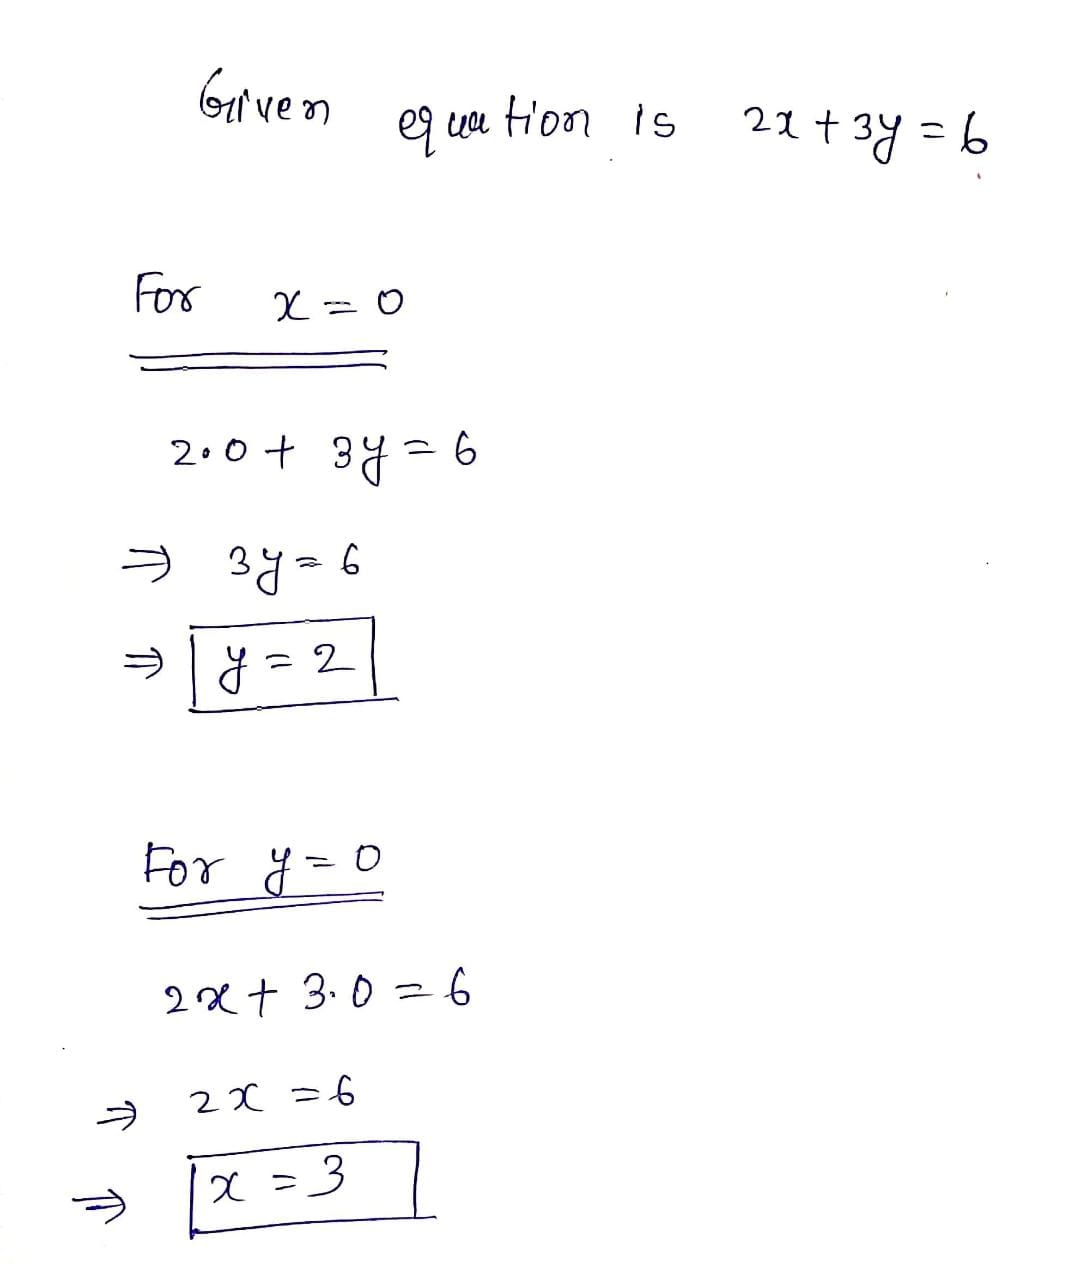 Given equation is 2x + 3y = 6
For x = 0
2·0 + 3y = 6
⇒ 3y = 6
⇒ y = 2
For y = 0
2x + 3·0 = 6
⇒ 2x = 6
⇒ x = 3